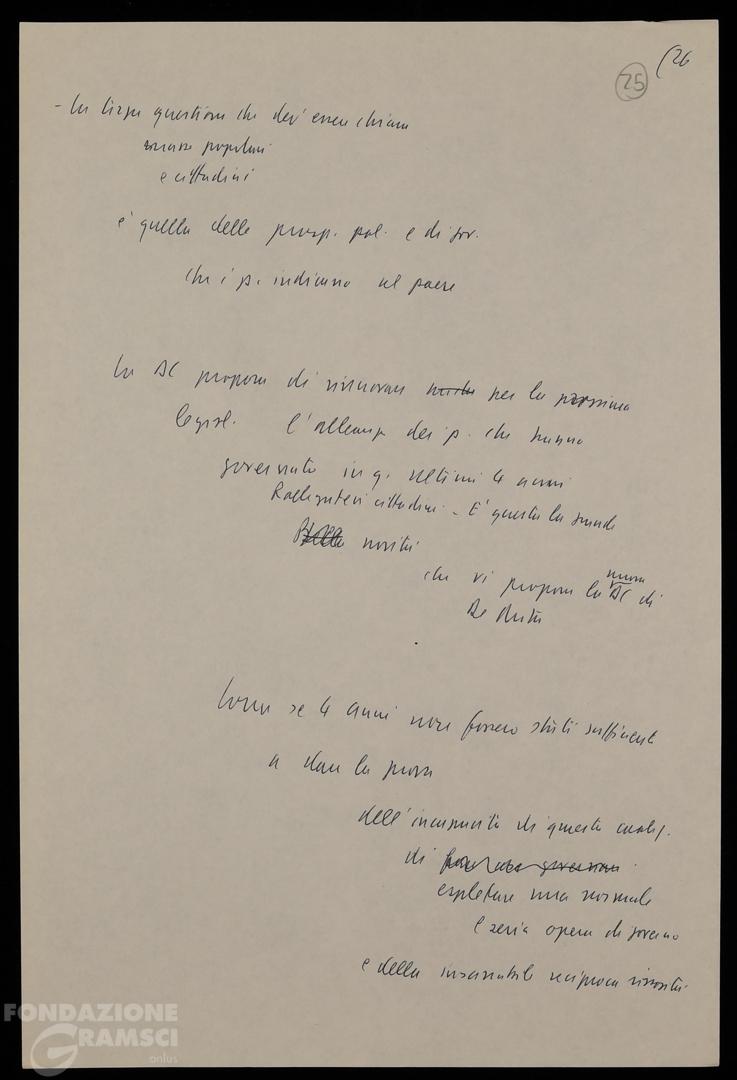 (26
25
- La terza questione che dev'essere chiara
masse popolari
e cittadini
è quella delle prosp. pol. e di gov.
che i p. indicano al paese
La DC propone di rinnovare per la prossima
legisl. l'alleanza dei p. che hanno
governato in q. ultimi 4 anni
Rallegratevi cittadini - E' questa la grande
novità
che vi propone la nuova DC di
De Mita
Come se 4 anni non fossero stati sufficienti
a dare la prova
dell'incapacità di questa coaliz.
di
espletare una normale
e seria opera di governo
e della insanabile reciproca rissosità
FONDAZIONE
GRAMSCI
onlus